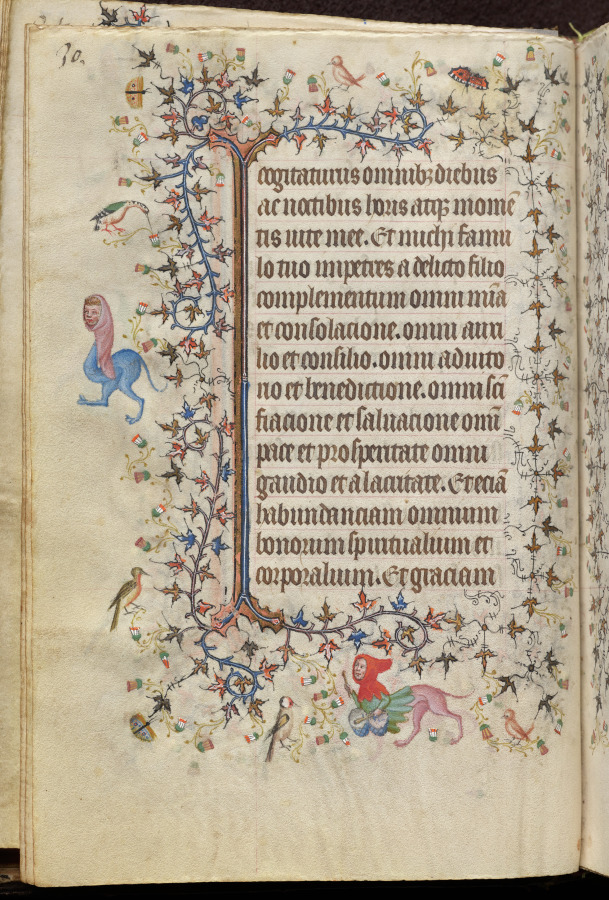 30.
cogitaturus omnibꝫ diebus
ac noctibus horis atqꝫ mome
tis uite mee. Et michi famu
lo tuo impetres a delicto filio
complementum omni mīa
et consolacione. omni auxi
lio et consilio. omni adiuto
rio et benedictione. omni sci
fiacione et saluacione omī
pace et prosperitate omni
gaudio et alacritate. Et eciā
habundanciam omnium
bonorum spiritualium et
corporalium. Et graciam